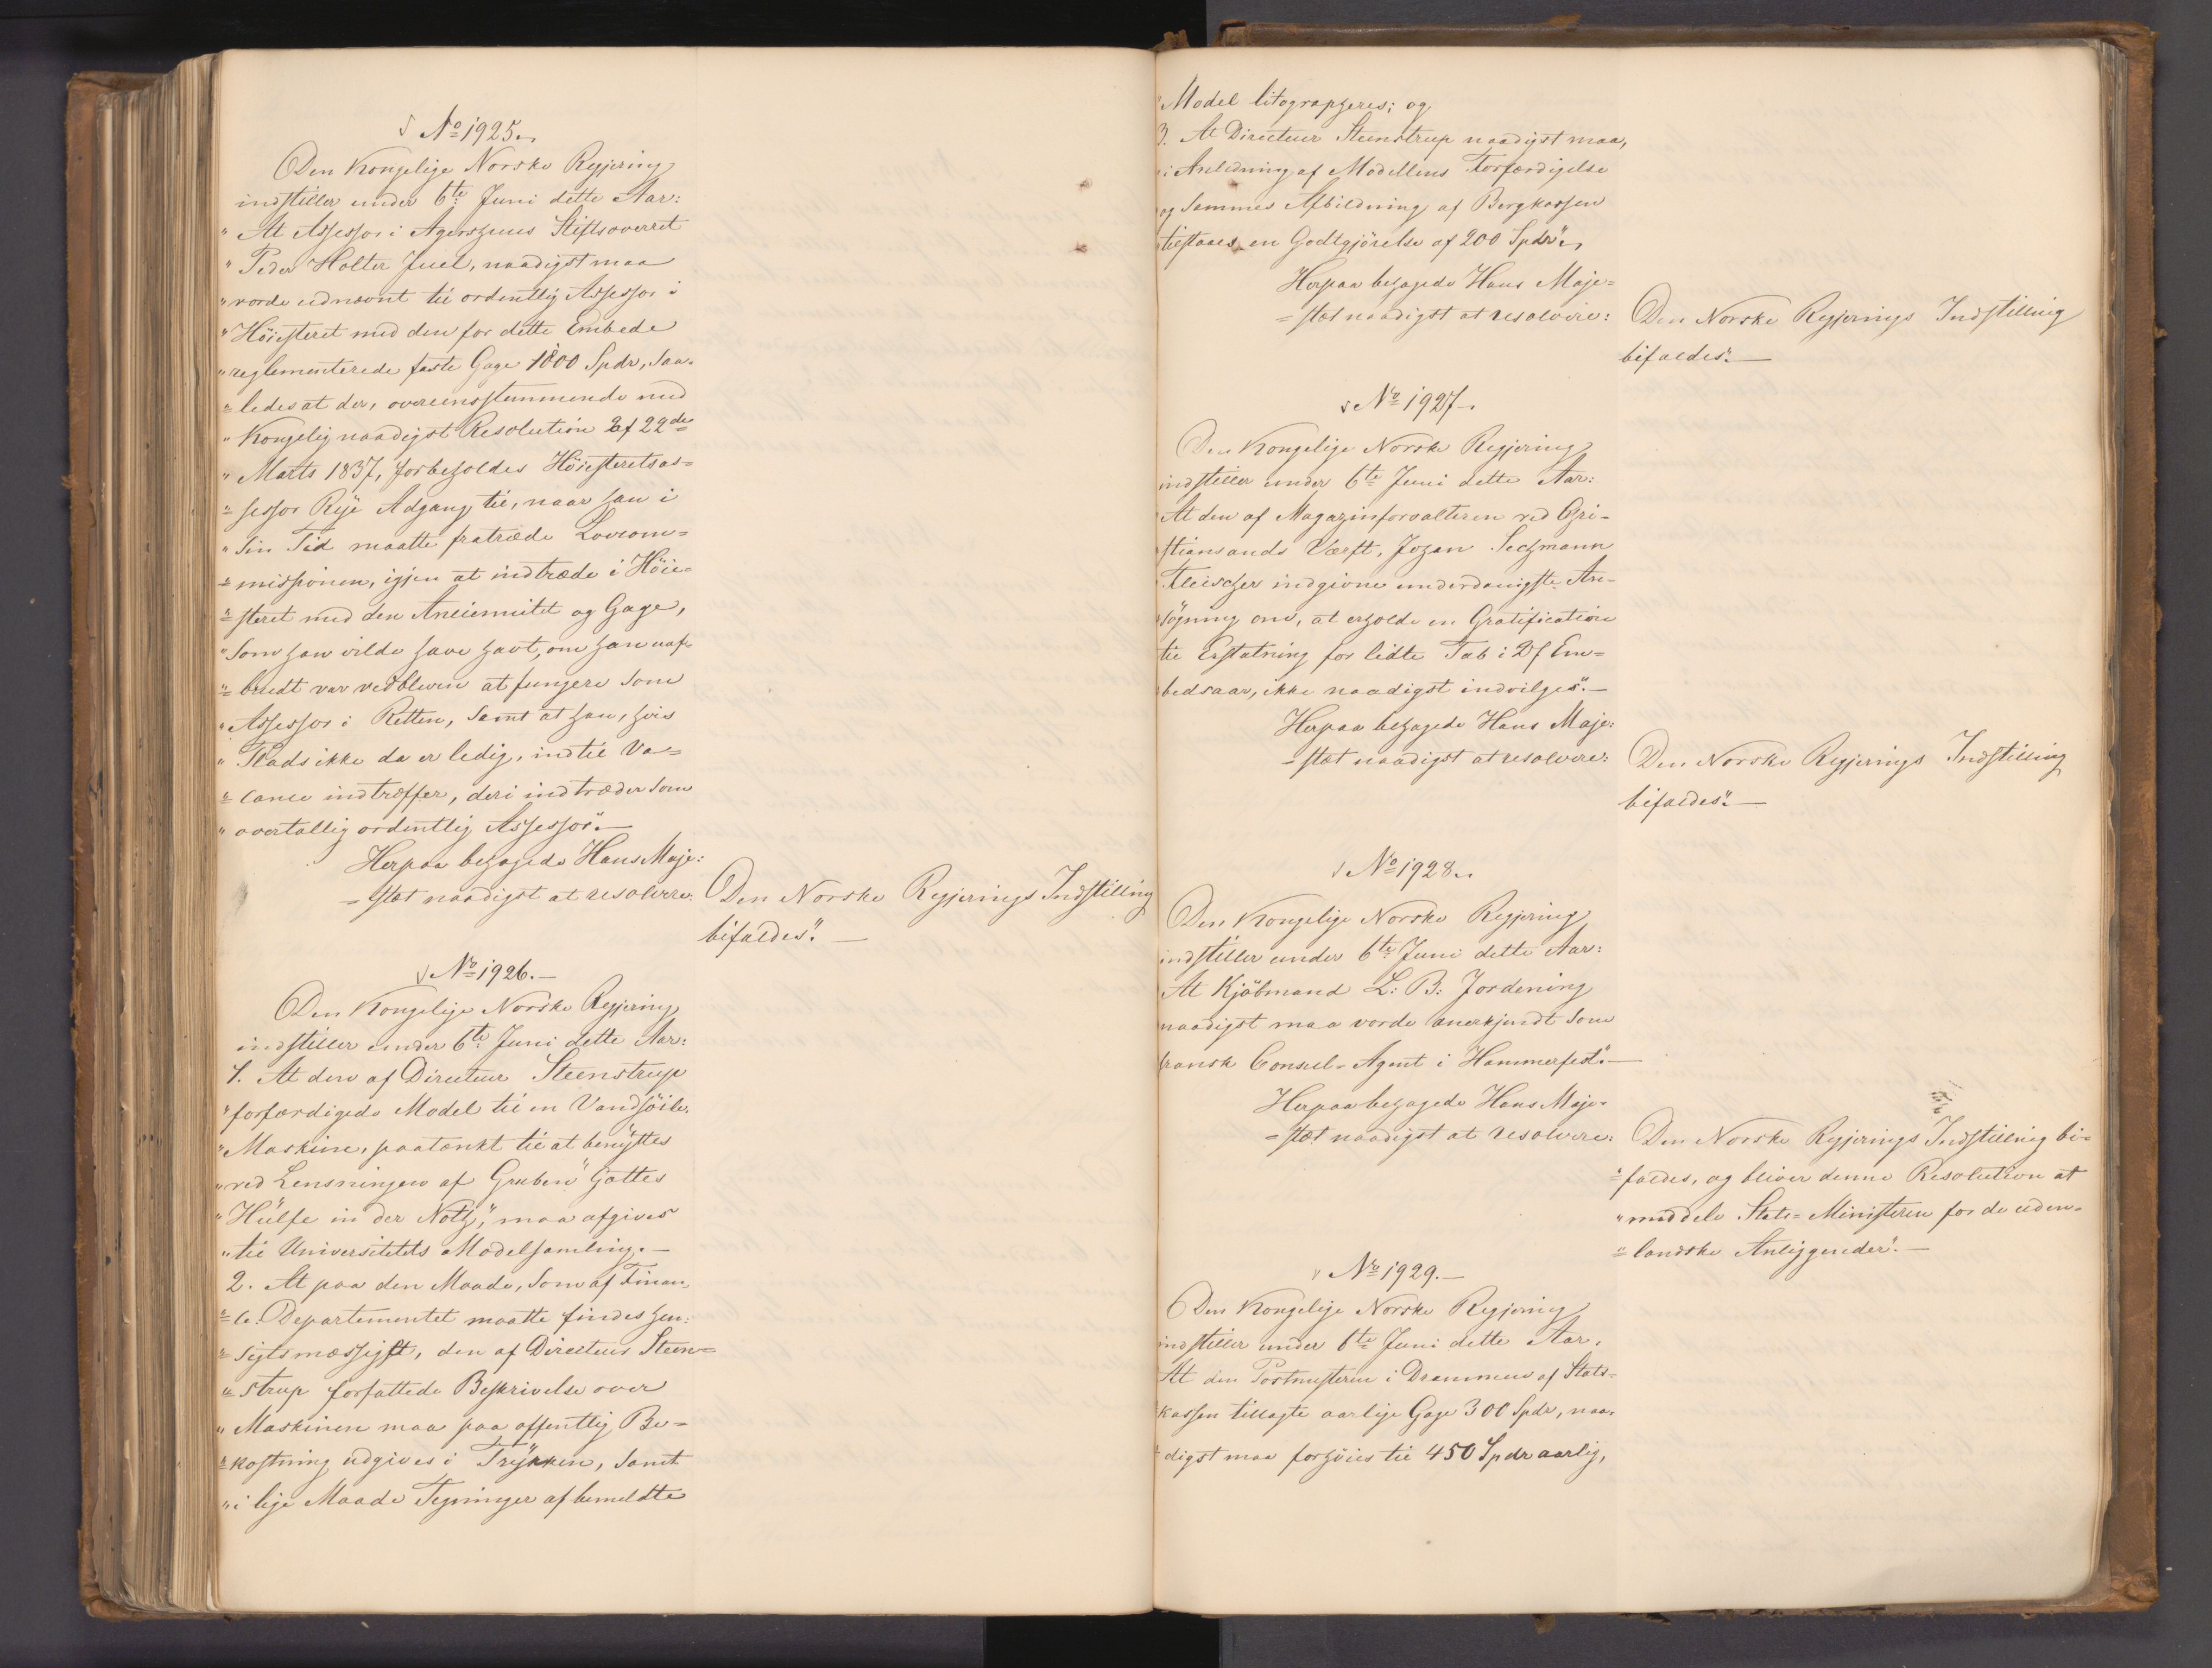 No 1925.
Den Kongelige Norske Regjering
indstiller under 6te Juni dette Aar:
"At Assessor i Agershuus Stiftsoverret
"Peder Holter Juel, naadigst maa
"vorde udnævnt til ordentlig Assessor i
"Höiesteret med den for dette Embede
"reglementerede faste Gage 1800 Spdr, saa-
"=ledes at der, overeensstemmende med
"Kongelig naadigst Resolution af 22de
"Marts 1837, forbeholdes Höiesteretsas=
"=sessor Rye Adgang til, naar han i
"sin Tid maatte fratræde Lovcom=
"=missionen, igjen at indtræde i Höie=
"=steret med den Anciennitet og Gage,
"som han vilde have havt, om han uaf-
"=brudt var vedbleven at fungere som
"Assessor i Retten, samt at han, hvis
"Plads ikke da er ledig, indtil Va=
"=cance indtræffer, deri indtræder som
"overtallig ordentlig Assessor".—
Herpaa behagede Hans Maje:
=stæt naadigst at resolvere:
Den Norske Regjerings Indstilling
bifaldes".—
No 1926.—
Den Kongelige Norske Regjering
indstiller under 6te Juni dette Aar:
1. At den af Directeur Steenstrup
"forfærdigede Model til en Vandsöile-
"Maskine, paatænkt til at benyttes
"ved Lensningen af Gruben "Gottes
"Hülfe in der Noth", maa afgives
"til Universitetets Modelsamling.—
2. At paa den Maade, som af Finan-
"=ce-Departementet maatte findes hen:
"=sigtsmæssigst, den af Directeur Steen=
"=strup forfattede Beskrivelse over
"Maskinen maa paa offentlig Be=
"=kostning udgives i Trykken, samt
"i lige Maade Tegninger af bemeldte
"Model litographeres; og
3. At Directeur Steenstrup naadigst maa,
"i Anledning af Modellens Forfærdigelse
og sammes Afbildning af Bergkassen
tilstaaes en Godtgjörelse af 200 Spdr".
Herpaa behagede Hans Maje=
=stæt naadigst at resolvere:
Den Norske Regjerings Indstilling
bifaldes".—
No 1927.
Den Kongelige Norske Regjering
indstiller under 6te Juni dette Aar:
At den af Magazinforvalteren ved Chri-
stiansands Værft, Johan Sechmann
Fleischer indgivne underdanigste An-
sögning om, at erholde en Gratification
til Erstatning for lidte Tab i 2de Em=
bedsaar, ikke naadigst indvilges".—
Herpaa behagede Hans Maje:
=stæt naadigst at resolvere:
Den Norske Regjerings Indstilling
bifaldes".—
No 1928.
Den Kongelige Norske Regjering
indstiller under 6te Juni dette Aar:
At Kjöbmand L: B: Jordening
naadigst maa vorde anerkjendt som
fransk Consul-Agent i Hammerfest".—
Herpaa behagede Hans Maje-
=stæt naadigst at resolvere:
Den Norske Regjerings Indstilling bi=
"=faldes, og bliver denne Resolution at
"meddele Stats=Ministeren for de uden=
"=landske Anliggender".—
No 1929.—
Den Kongelige Norske Regjering
indstiller under 6te Juni dette Aar.
At den Postmesteren i Drammen af Stats=
kassen tillagte aarlige Gage 300 Spdr, naa-
digst maa forhöies til 450 Spdr aarlig,